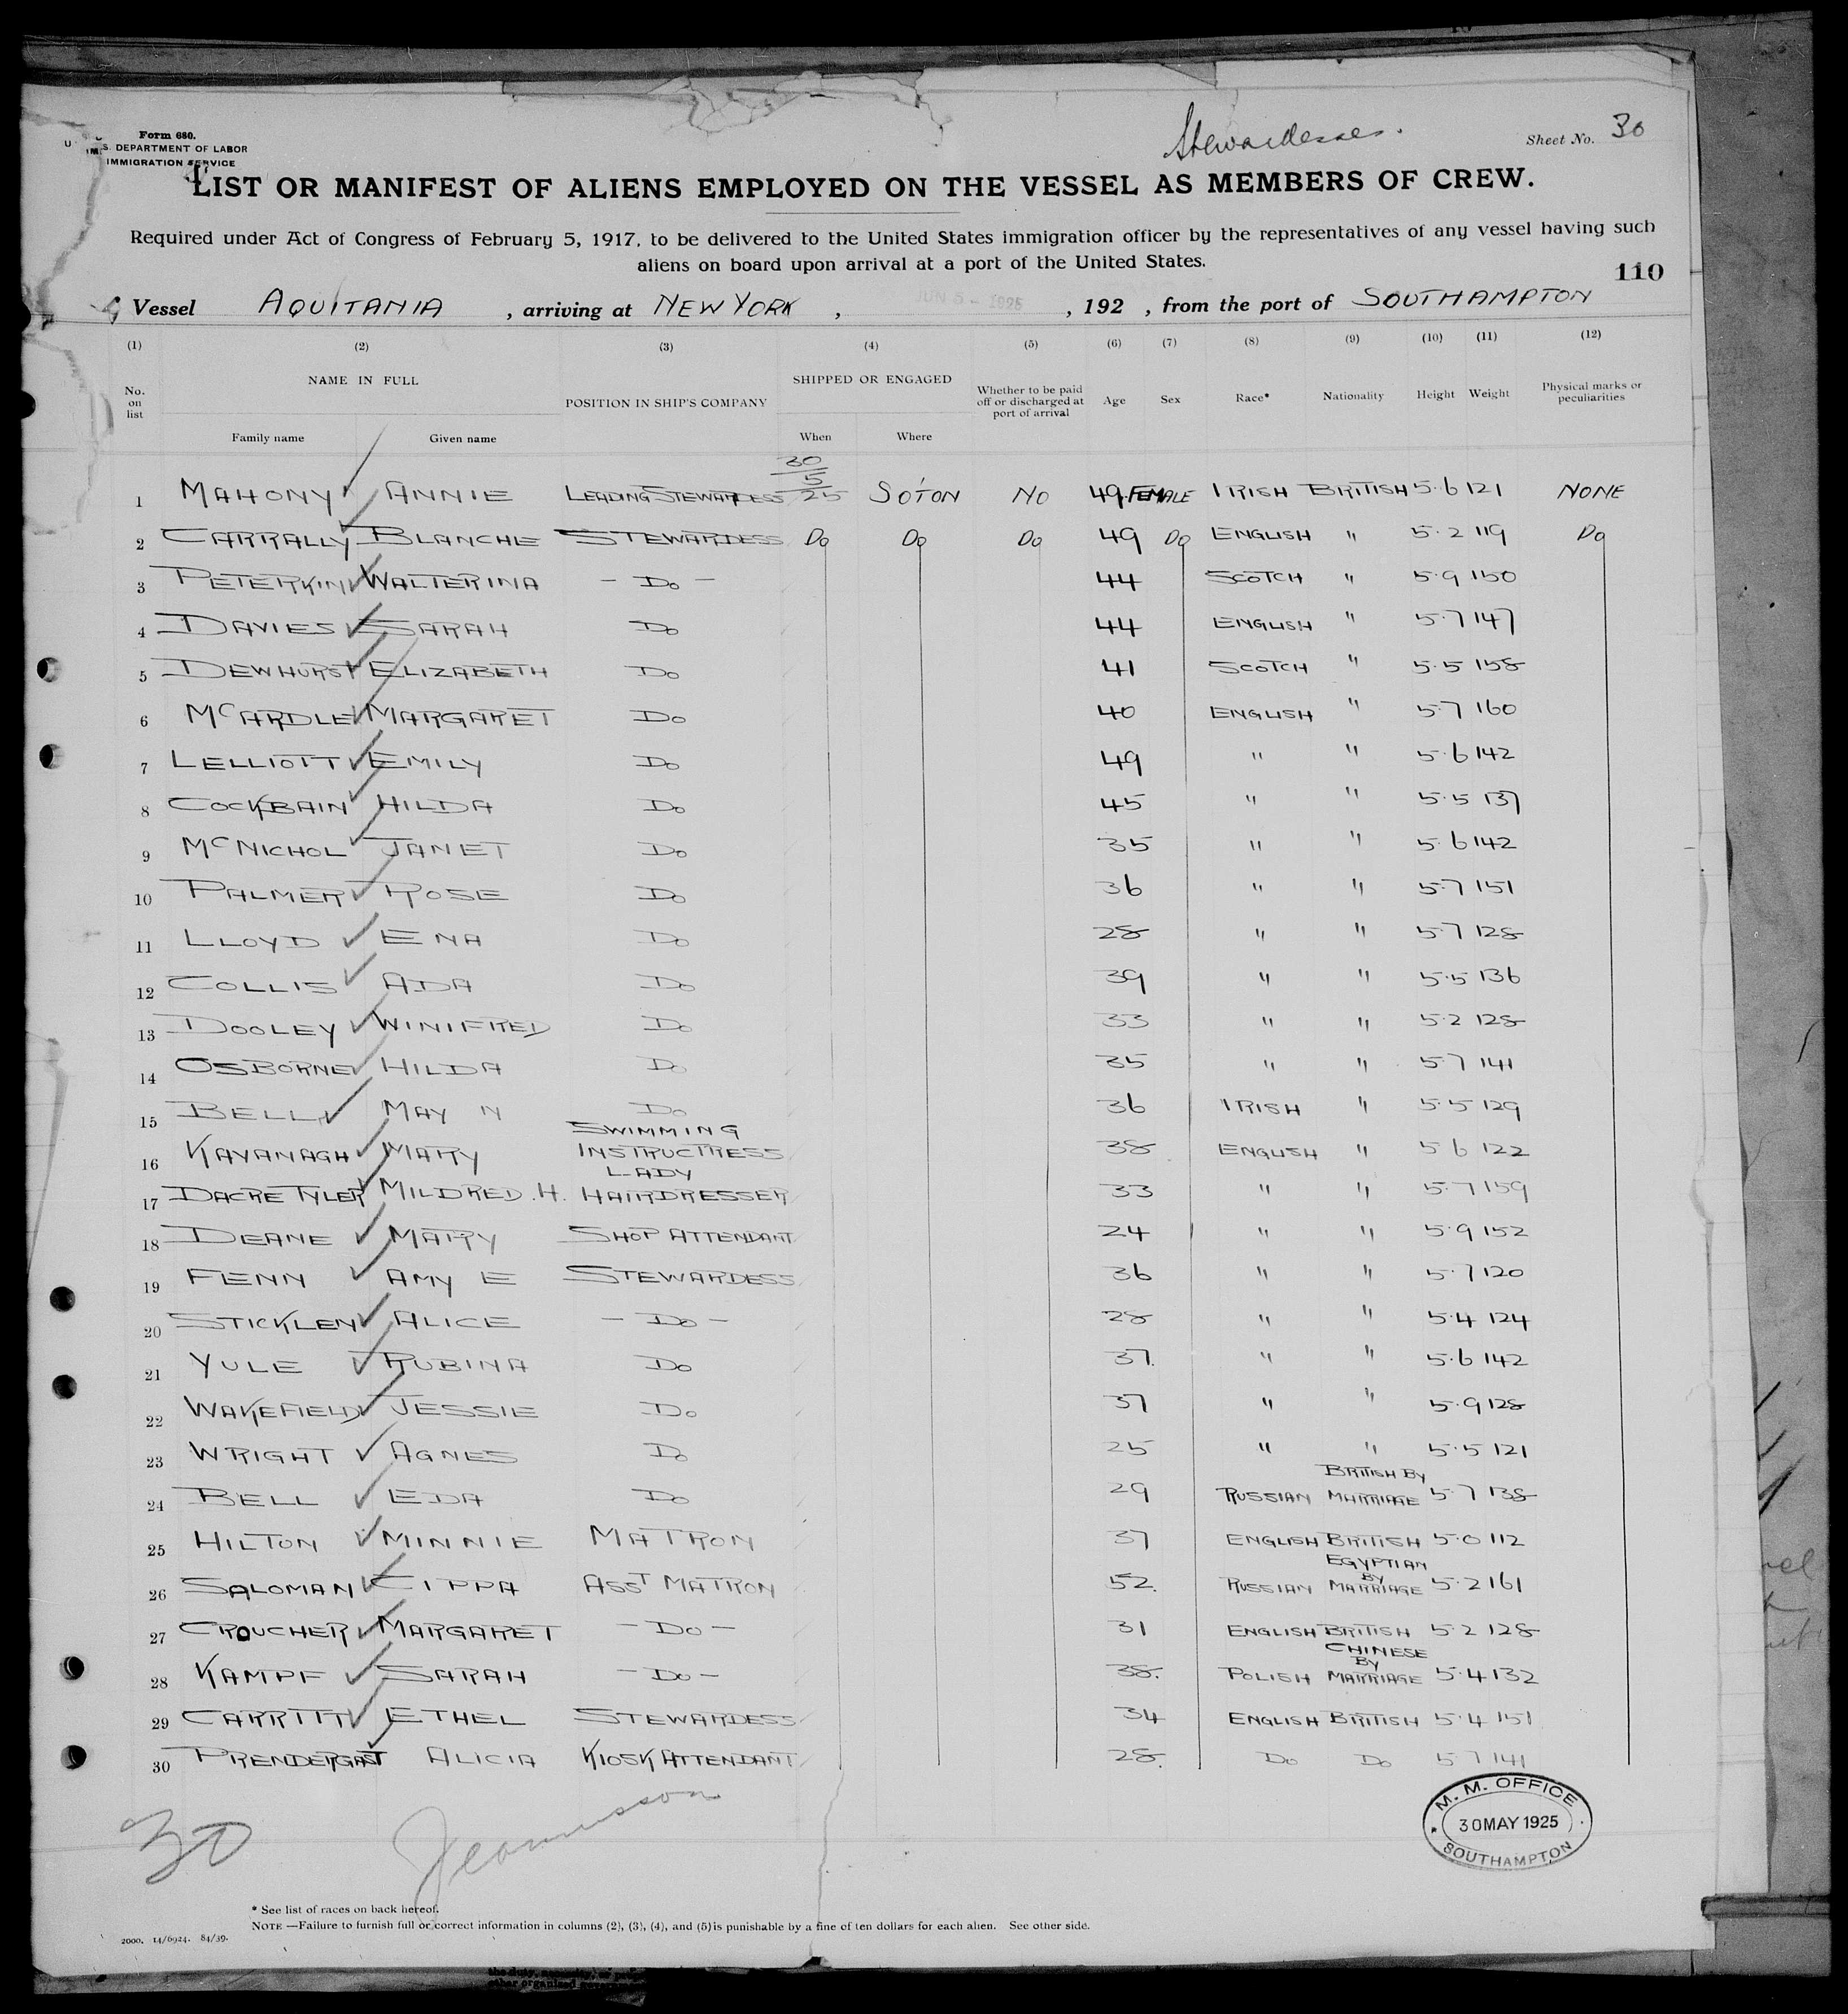 Form 680.
U. S. DEPARTMENT OF LABOR
IMMIGRATION SERVICE
Stewardesses.
Sheet No. 30
LIST OR MANIFEST OF ALIENS EMPLOYED ON THE VESSEL AS MEMBERS OF CREW.
Required under Act of Congress of February 5, 1917, to be delivered to the United States immigration officer by the representatives of any vessel having such
aliens on board upon arrival at a port of the United States.
110
Vessel AQUITANIA , arriving at NEW YORK , JUN 5 - 1925 , 192 , from the port of SOUTHAMPTON
(1) (2) (3) (4) (5) (6) (7) (8) (9) (10) (11) (12)
No. on list NAME IN FULL Family name Given name POSITION IN SHIP'S COMPANY SHIPPED OR ENGAGED When Where Whether to be paid off or discharged at port of arrival Age Sex Race* Nationality Height Weight Physical marks or peculiarities
1 MAHONY ANNIE LEADING STEWARDESS 30/5/25 SO'TON NO 49 FEMALE IRISH BRITISH 5·6 121 NONE
2 CARRALLY BLANCHE STEWARDESS Do Do Do 49 Do ENGLISH " 5·2 119 Do
3 PETERKIN WALTERINA - Do - 44 SCOTCH " 5·9 150
4 DAVIES SARAH Do 44 ENGLISH " 5·7 147
5 DEWHURST ELIZABETH Do 41 SCOTCH " 5·5 158
6 McARDLE MARGARET Do 40 ENGLISH " 5·7 160
7 LELLIOTT EMILY Do 49 " " 5·6 142
8 COCKBAIN HILDA Do 45 " " 5·5 137
9 McNICHOL JANET Do 35 " " 5·6 142
10 PALMER ROSE Do 36 " " 5·7 151
11 LLOYD ENA Do 28 " " 5·7 128
12 COLLIS ADA Do 39 " " 5·5 136
13 DOOLEY WINIFRED Do 33 " " 5·2 128
14 OSBORNE HILDA Do 35 " " 5·7 141
15 BELL MAY N Do 36 IRISH " 5·5 129
16 KAVANAGH MARY SWIMMING INSTRUCTRESS 38 ENGLISH " 5·6 122
17 DACRE TYLER MILDRED. H. LADY HAIRDRESSER 33 " " 5·7 159
18 DEANE MARY SHOP ATTENDANT 24 " " 5·9 152
19 FENN AMY E STEWARDESS 36 " " 5·7 120
20 STICKLEN ALICE - Do - 28 " " 5·4 124
21 YULE RUBINA Do 37. " " 5·6 142
22 WAKEFIELD JESSIE Do 37 " " 5·9 128
23 WRIGHT AGNES Do 25 " " 5·5 121
24 BELL EDA Do 29 RUSSIAN BRITISH BY MARRIAGE 5·7 138
25 HILTON MINNIE MATRON 37 ENGLISH BRITISH 5·0 112
26 SALOMAN CIPPA ASST MATRON 52. RUSSIAN EGYPTIAN BY MARRIAGE 5·2 161
27 CROUCHER MARGARET - Do - 31 ENGLISH BRITISH 5·2 128
28 KAMPF SARAH - Do - 38. POLISH CHINESE BY MARRIAGE 5·4 132
29 CARRITT ETHEL STEWARDESS 34 ENGLISH BRITISH 5·4 151
30 PRENDERGAST ALICIA KIOSK ATTENDANT 28. Do Do 5·7 141
M. M. OFFICE
30 MAY 1925
SOUTHAMPTON
30
* See list of races on back hereof.
NOTE —Failure to furnish full or correct information in columns (2), (3), (4), and (5) is punishable by a fine of ten dollars for each alien. See other side.
2000. 14/6924. 84/39.